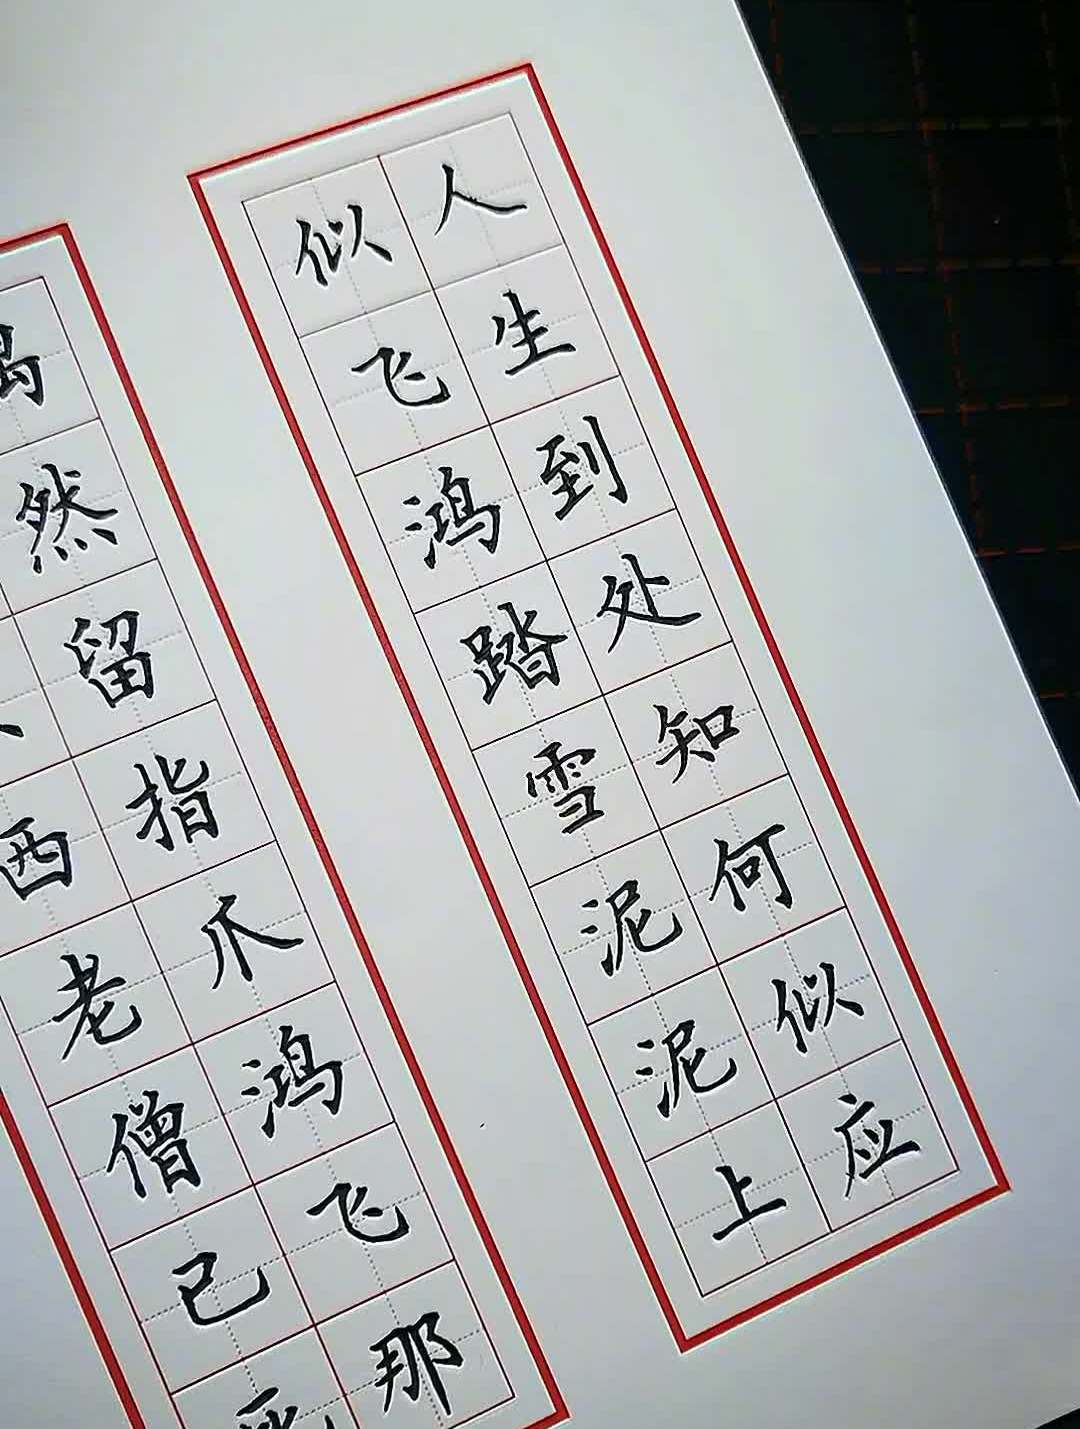 人生到处知何似应
似飞鸿踏雪泥泥上
然留指爪鸿飞那
西老僧已